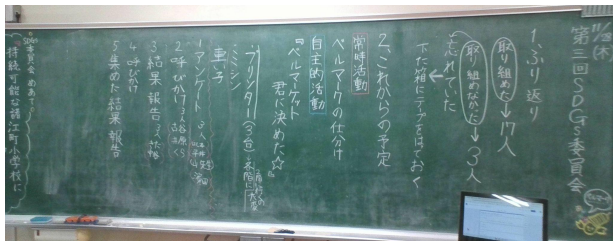 11/28(木)
第三回SDGs委員会
1.ふり返り
取り組めた→17人
取り組めなかた→3人
忘れていた
下た箱にテープをはっておく
2.これからの予定
常時活動
ベルマークの仕分け
自主的活動
『ベルマーケット
君に決めた☆』
プリンター(3台)
ミシン
車子
1アンケート
2呼びかけ
3結果報告
4呼びかけ
5集めた結果報告
SDGs委員会めあて
持続可能な諸江町小学校に